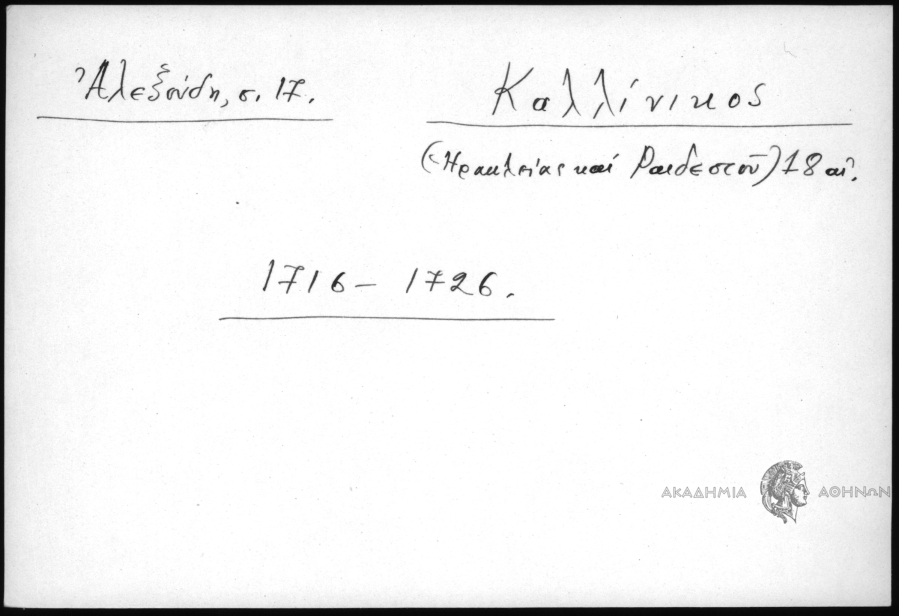 Ἀλεξούδη, σ. 17.
Καλλίνικος
(Ἡρακλείας καί Ραιδεστοῦ) 18 αἰ.
1716 – 1726.
ΑΚΑΔΗΜΙΑ ΑΘΗΝΩΝ